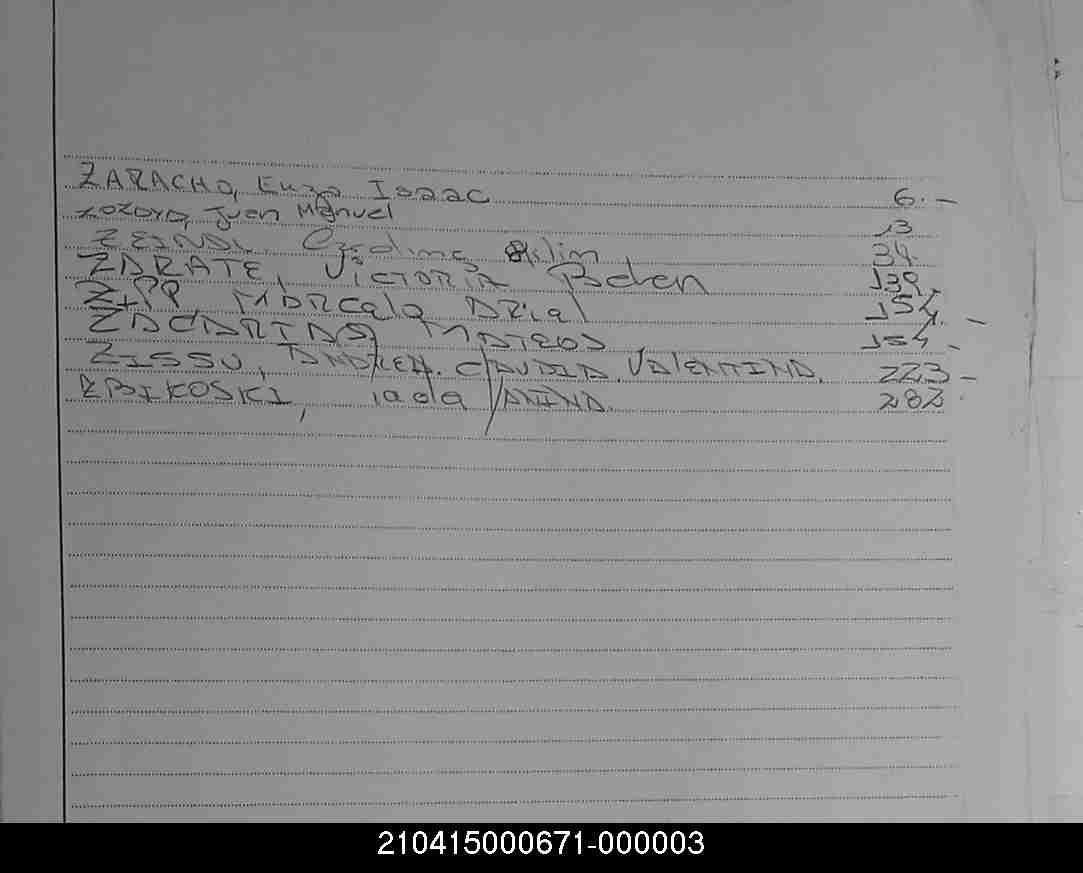 ZARACHO, Enzo Isaac 6.-
zozoya, Juan Manuel 13
ZEINDL 34
ZARATE, VICTORIA Belen 139.
Zipp Marcela 154.-
ZACARIAS, MATEOS 154.-
ZISSU, ANDREA. CLAUDIA. VALENTINA. 223-
ZBIKOSKI, YANINA. 282
210415000671-000003